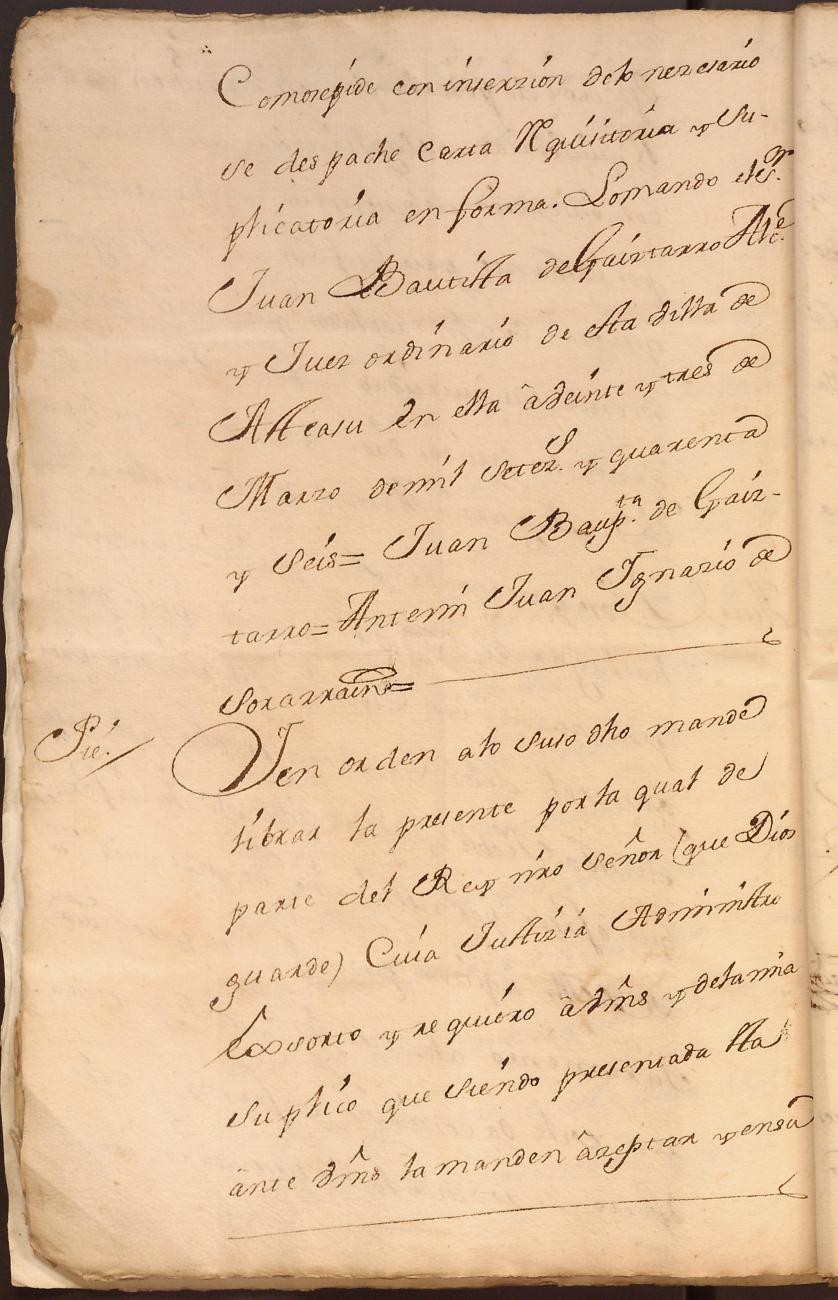 Comosepide con inserzion delo nezesario
se despache Carta Requisitoria y Su-
plicatoria en forma. Lo mando el S.or
Juan Bautista de Gaintarro Alc.e
y Juez ordinario de esta Villa de
Asteasu en ella â veinte y tres de
Marzo de mil Setez.s y quarenta
y Seis= Juan Baup.ta de Gaiz-
tarro= Antemi Juan Ignazio de
Sorarrain=
Pie.
Y en orden alo suso dho mande
librar la presente por la qual de
parte del Rey nro Señor (que Dios
guarde) Cuia Justizia Administro
Exsorto y requiero â Vms y dela mia
Suplico que siendo presentada
ânte Vms la manden âzeptar y ensu